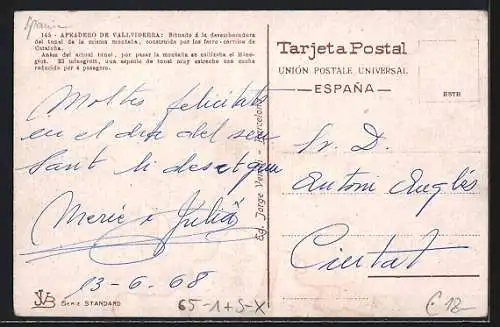 Spain
145 - APEADERO DE VALLVIDRERA: Situado á la desembocadura
del tunel de la misma montaña, construido por los ferro-carriles de
Cataluña.
Antes del actual tunel, por pasar la montaña se utilizaba el Mine-
grott. El minegrott, una especie de tunel muy estrecho con coche
reducido por 4 pasageros.
Moltes felicitats
en el dia del seu
Sant li desetgem
Mercè i Julià
13-6-68
JVB SERIE STANDARD
65-1+S-X
Ed. Jorge Venini - Barcelona
Tarjeta Postal
UNIÓN POSTALE UNIVERSAL
ESPAÑA
Sr. D.
Antoni Anglès
Ciutat
€ 18